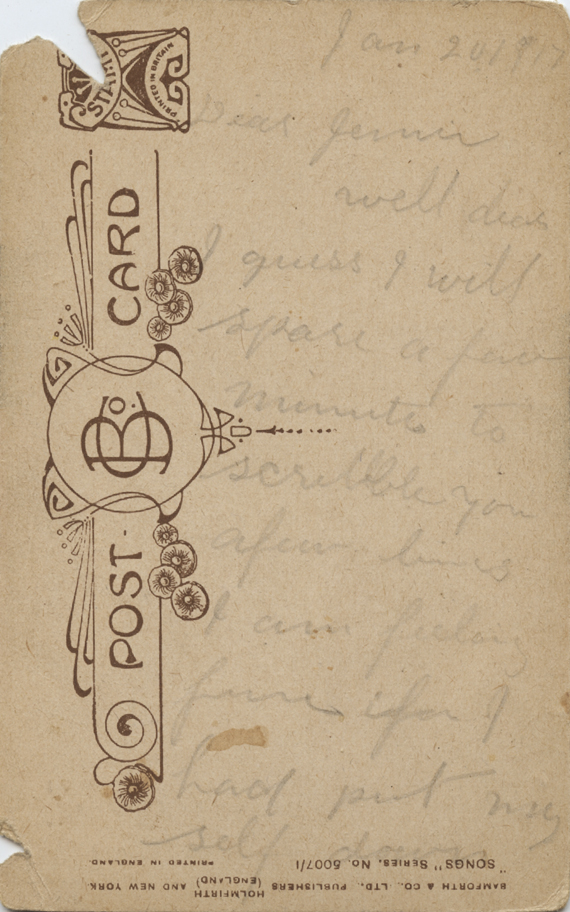 Jan 20/19
Dear Jennie
well dear
I guess I will
spare a few
minutes to
scribble you
a few lines
I am feelin
fine if I
had put my
self down
STAMP
PRINTED IN BRITAIN
POST CARD
B & Co.
"SONGS" SERIES, No. 5007/1
PRINTED IN ENGLAND.
BAMFORTH & CO., LTD., PUBLISHERS HOLMFIRTH (ENGLAND) AND NEW YORK